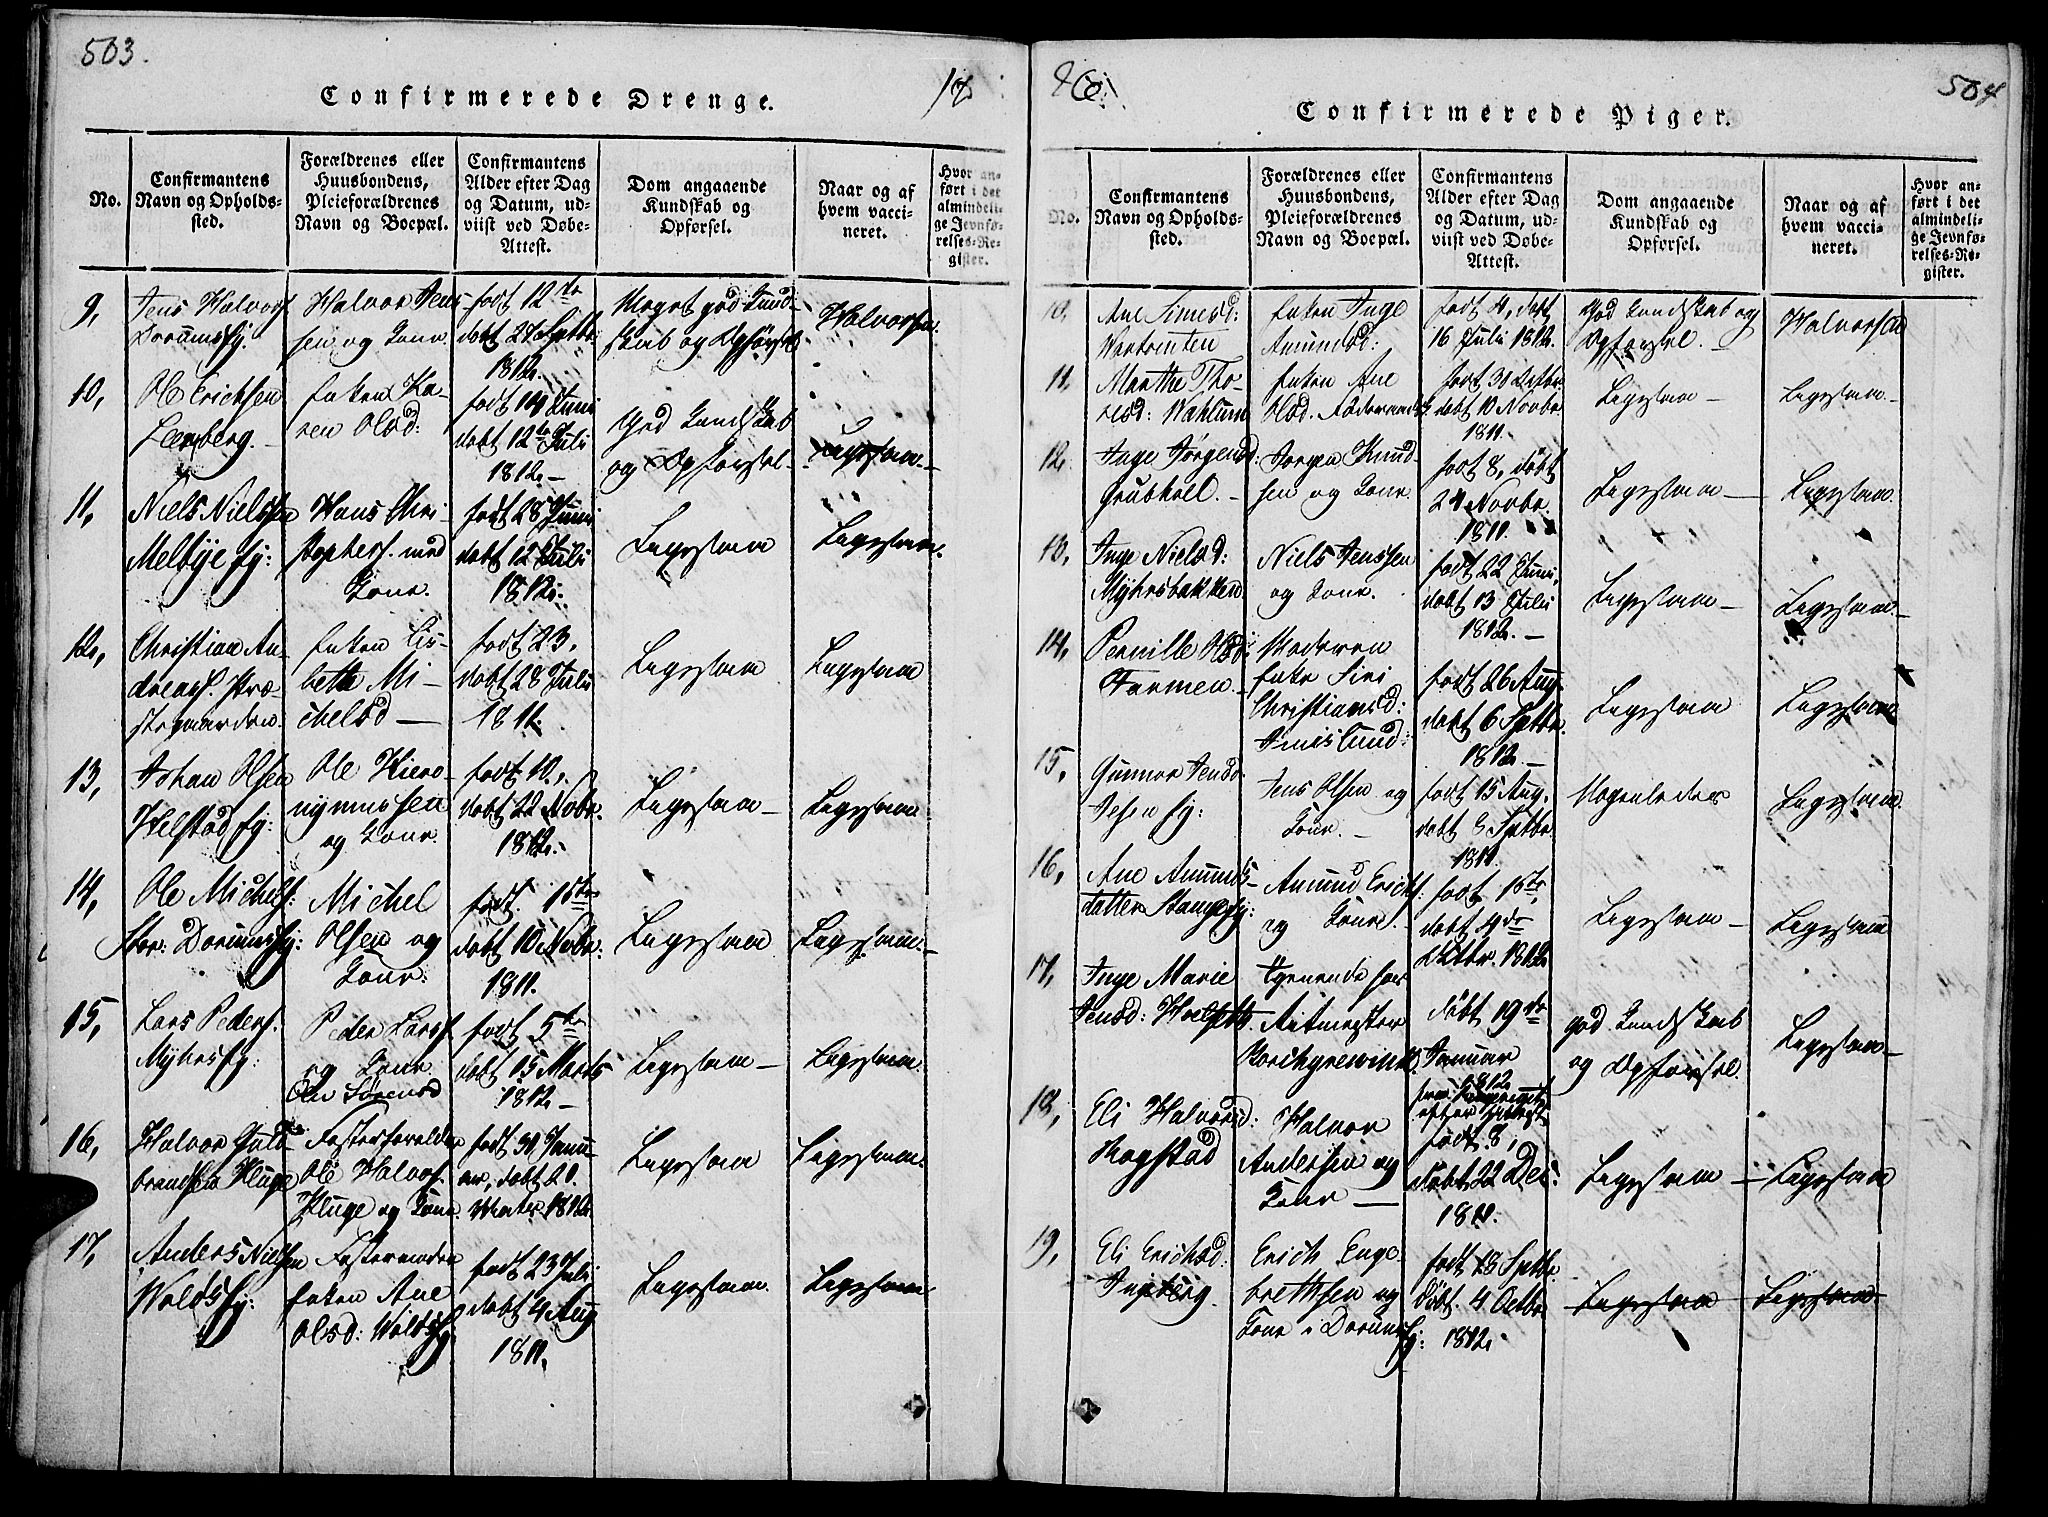 503.
Confirmerede Drenge.
18
No.
Confirmantens Navn og Opholdssted.
Forældrenes eller Huusbondens, Pleieforældrenes Navn og Boepæl.
Confirmantens Alder efter Dag og Datum, udviist ved Døbe-Attest.
Dom angaaende Kundskab og Opførsel.
Naar og af hvem vaccineret.
Hvor anført i det almindelige Jevnførelses-Register.
9,
Jens Halvors.
Dorumsej.
Halvor Jenssen og Kone
født 12te
døbt 27 Septbr
1812.
Meget god Kundskab og Opførsel
Halvorsen.
10,
Ole Erichsen
Leerberg.
Enken Karen Olsd:
født 14 Juni
døbt 12te Juli
1812.
God Kundskab
og Opførsel.
Ligesaa.
11,
Niels Nielssen
Melbye ej:
Hans Christophers. med
Kone.
født 28 Juni
døbt 12 Juli
1812.
Ligesaa
Ligesaa.
12,
Christian Andreas. Præstegaarden.
Enken Lisbeth Michelsd
født 23,
døbt 28 Juli
1811.
Ligesaa
Ligesaa
13,
Johan Olsen
Helstad ej:
Ole Hieronymussen
og Kone.
født 10,
døbt 22 Novbr.
1812.
Ligesaa
Ligesaa
14,
Ole Michels:
Stor. Dorumsej:
Michel
Olsen og
Kone.
født 15te
døbt 10 Novbr:
1811.
Ligesaa
Ligesaa.
15,
Lars Peders.
Myhrsej:
Peder Larss.
og Kone
Olea Sørensd
født 5te
døbt 15 Marts
1812.
Ligesaa
Ligesaa.
16,
Halvor Guldbrandsen Kluge
Fosterforældre
Ole Halvors.
Kluge og Kone.
født 30 Januar, døbt 20.
Marts 1812.
Ligesaa
Ligesaa.
17,
Anders Nielsen
Woldsej:
Fostermoder
Enken Ane
Olsd: Woldsej:
født 23 Juli
døbt 4 Aug
1811.
Ligesaa.
Ligesaa.
504
Confirmerede Piger.
No.
Confirmantens Navn og Opholdssted.
Forældrenes eller Huusbondens, Pleieforældrenes Navn og Boepæl.
Confirmantens Alder efter Dag og Datum, udviist ved Døbe-Attest.
Dom angaaende Kundskab og Opførsel.
Naar og af hvem vaccineret.
Hvor anført i det almindelige Jevnførelses-Register.
10,
Ane Simensd:
Enken Inge
Amundsd:
født 4, døbt
16 Juli 1812.
God Kundskab og
Opførsel.
Halvorsen
11,
Marthe Thoresd: Wahlum
Enken Ane
Olsd.
født 30 Octbr.
døbt 10 Novbr.
1811.
Ligesaa
Ligesaa.
12.
Inge Jørgensd:
Jørgen Knudsen og Kone.
født 8, døbt
24 Novbr.
1811.
Ligesaa
Ligesaa
13,
Inge Nielsd:
Myhrsbakken
Niels Jenssen
og Kone.
født 22 Juni,
døbt 13 Juli
1812.
Ligesaa
Ligesaa.
14,
Pernille Olsd:
Farmen.
Moderen
Enke Siri
Christiansd:
født 26 Aug.
døbt 6 Septbr.
1812.
Ligesaa
Ligesaa
15,
Gunnor Jensd.
Jens Olsen og
Kone.
født 15 Aug.
døbt 8 Septbr.
1811.
Ligesaa
16,
Ane Amundsdatter Stangeej:
Amund Erichs:
og Kone.
født 15te,
døbt 4de
Octbr. 1812.
Ligesaa
Ligesaa
17,
Inge Marie
Jensd:
tjenende hos
Ritmester
døbt 19de
Januar
1812
god Kundskab
og Opførsel.
Ligesaa
18,
Eli Halvorsd:
Mogstad
Halvor
Andersen og
Kone
født 8,
døbt 22 Dec:
1811.
Ligesaa
Ligesaa
19,
Eli Erichsd:
Ingeberg.
Erich Engebrethsen og
Kone i Dorumsej:
født 18 Septbr.
døbt. 4 Octbr.
1812.
Ligesaa
Ligesaa.